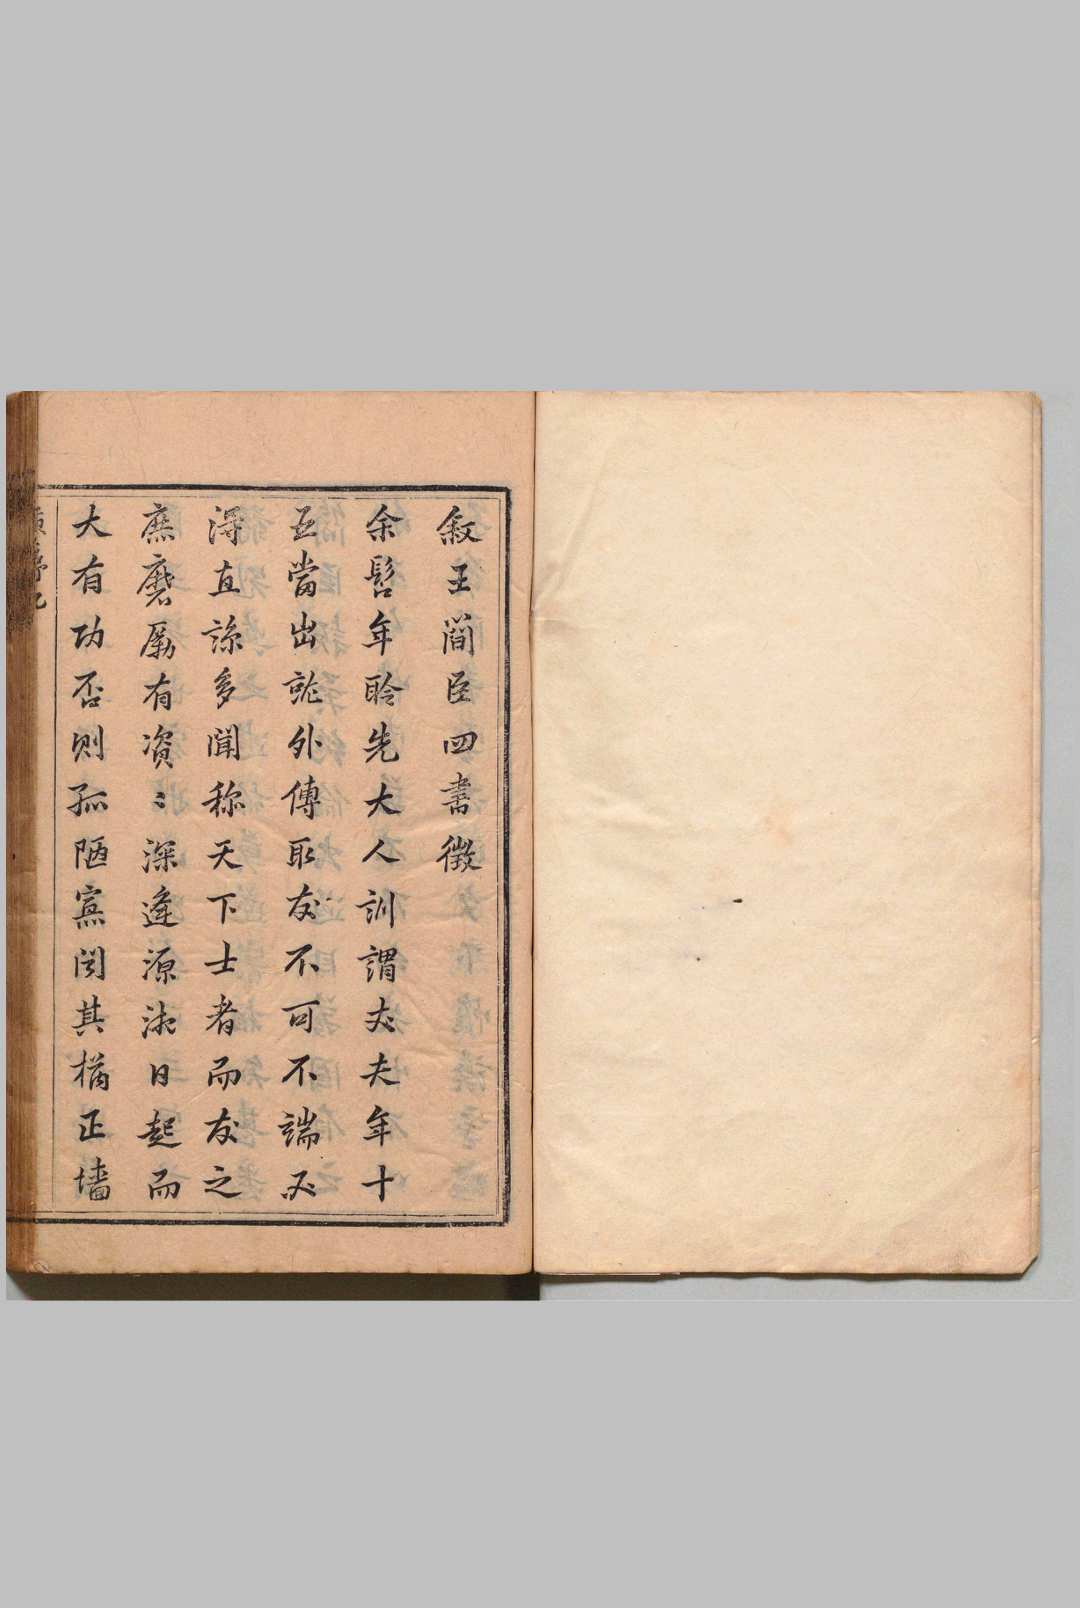 叙王蕳臣四書徵
余髫年聆先大人訓謂丈夫年十
五當出就外傅取友不可不端必
得直諒多聞称天下士者而友之
庶磨厲有資〻深逢源汝日起而
大有功否则孤陋寡闻其猶正墻